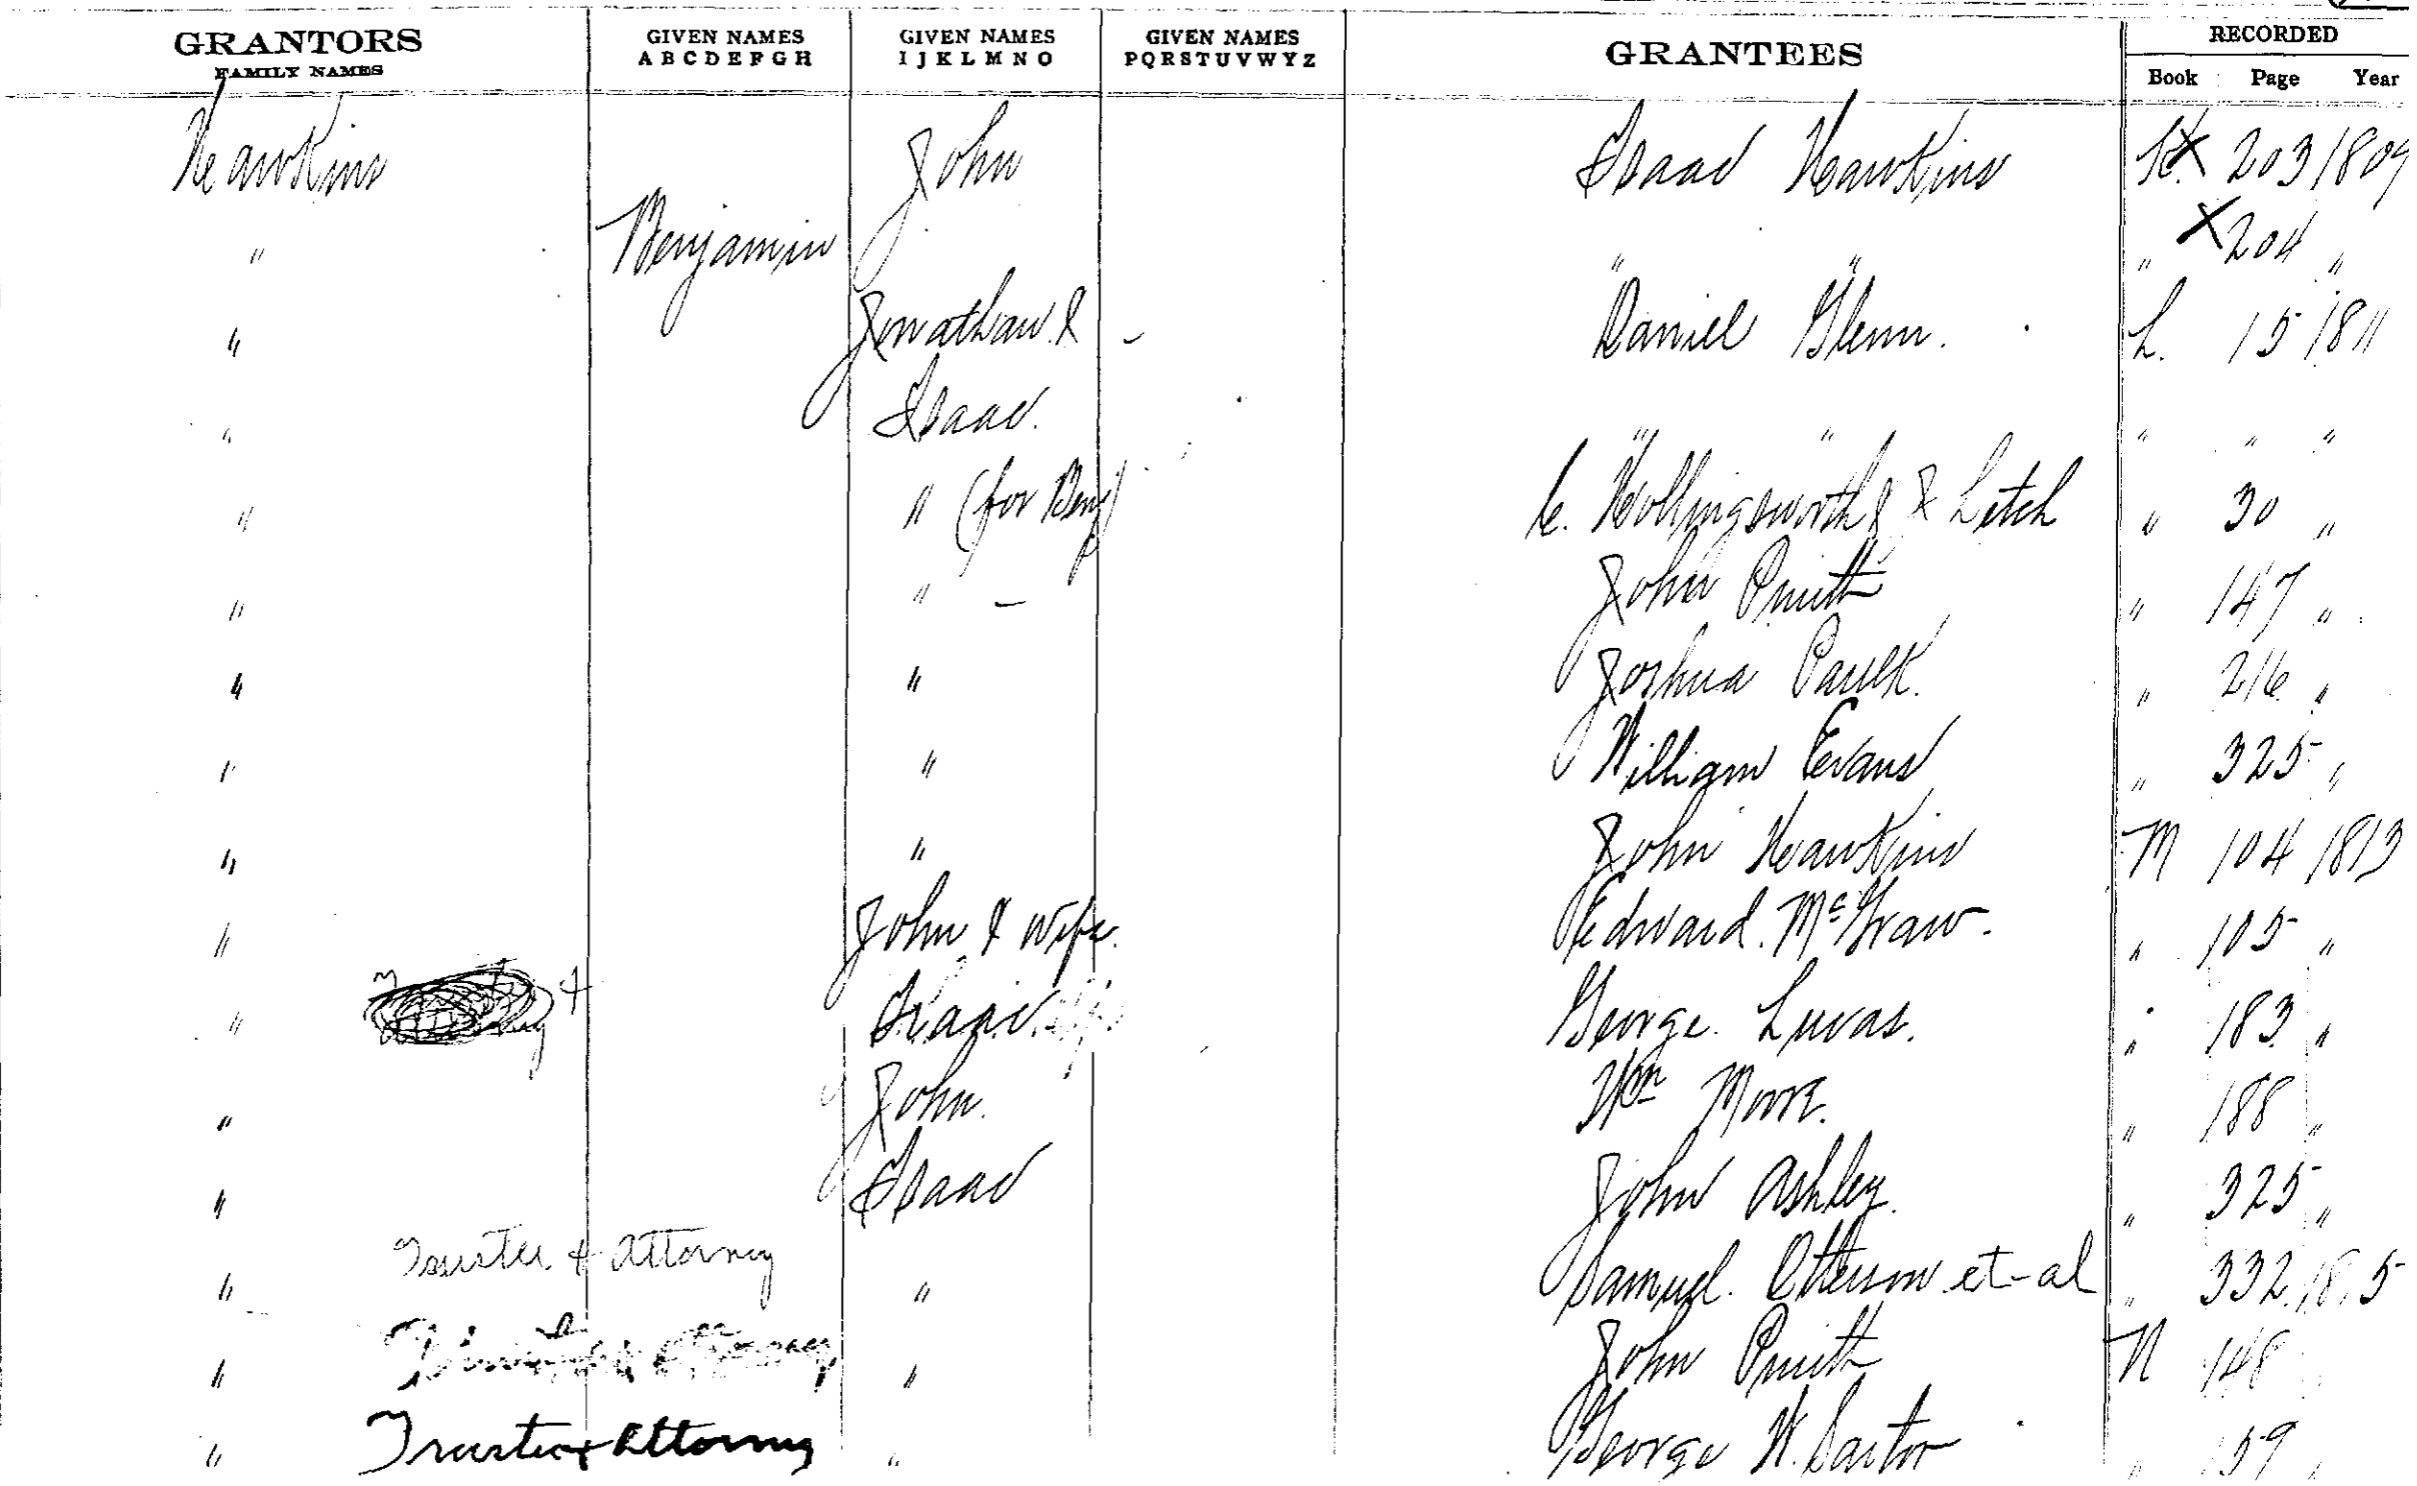 GRANTORS GIVEN NAMES GIVEN NAMES GIVEN NAMES GRANTEES RECORDED
FAMILY NAMES A B C D E F G H I J K L M N O P Q R S T U V W Y Z Book Page Year
Hawkins John Isaac Hawkins K. X 203 1809
" Benjamin " " " X 204 "
" Jonathan & - Daniel Glenn. L. 15 1811
" Isaac. " " " " "
" " (for Benj) C. Hollingsworth & Letch " 30 "
" " - John Pruitt " 147 "
" " Joshua Paulk. " 216 "
" " William Evans " 325 "
" " John Hawkins M 104 1813
" John & Wife. Edward. McGraw. " 105 "
" & Isaac George Lucas. " 183 "
" John. Wm Moore. " 188 "
" Isaac John Ashley. " 325 "
" Trustee & Attorney " Samuel. Otterson et-al " 332 1815
" " John Pruitt N 148
" Trustee & Attorney " George W. Sartor " 159 "